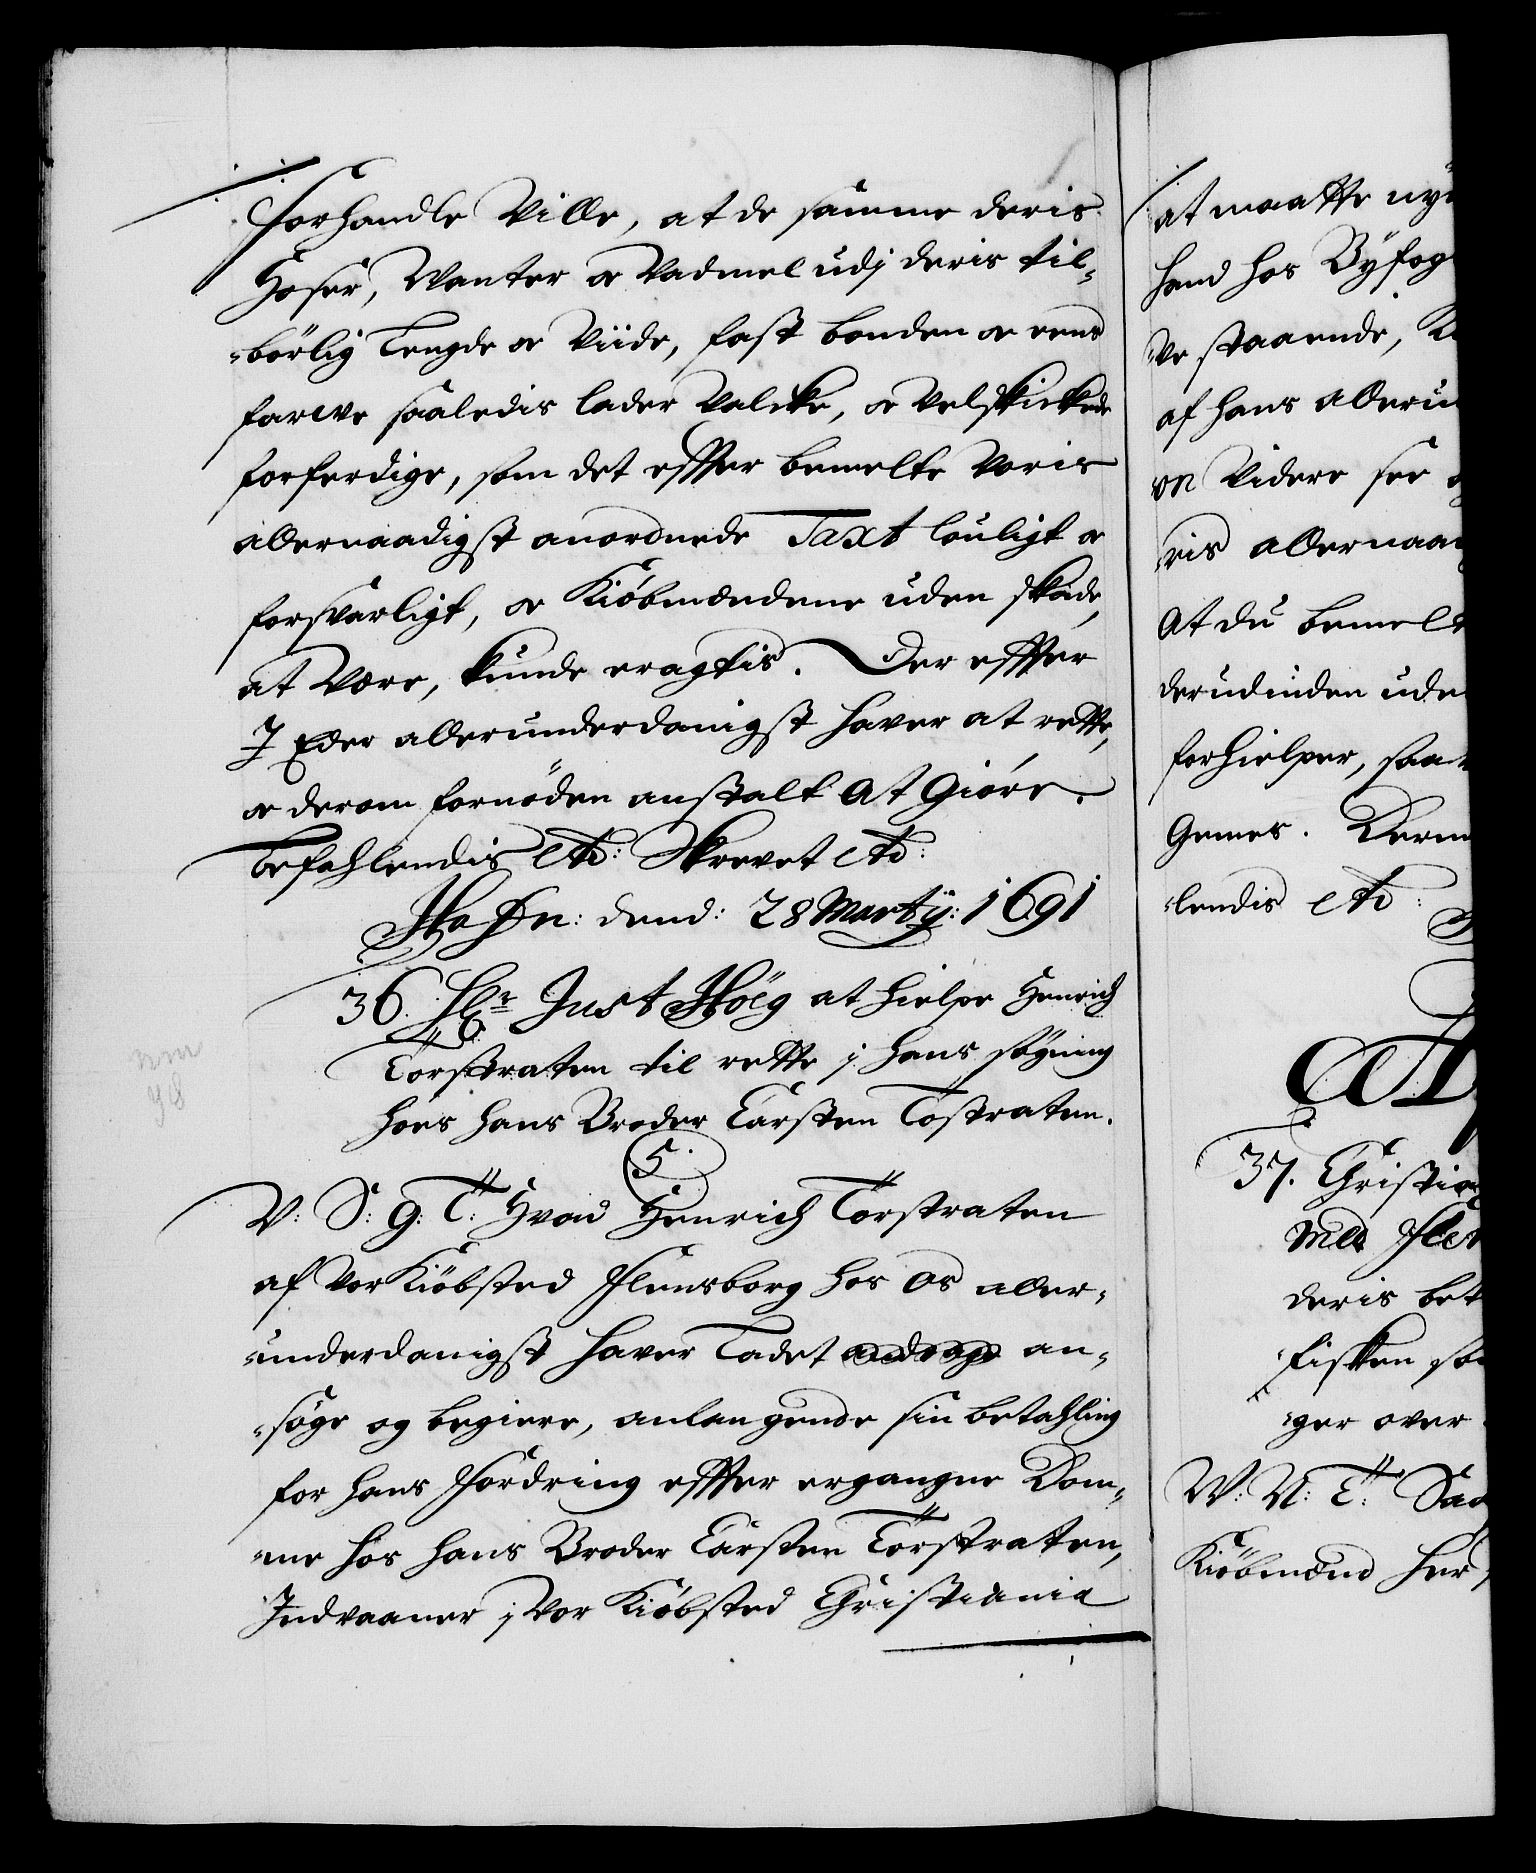 forhandle Ville, at de samme deris
Hoser, Wanter oc Vadmel udj deris til-
-börlig Lengde oc Viide, fast bonden oc eens
farwe saaledis lader Valcke, oc Velskickede
forferdige, som det efter bemelte Voris
allernaadigst anordnede Taxt louligt oc
forsvarligt, oc Kiöbmendene uden skade,
at Være, kunde eragtis. Der efter
I Eder allerunderdanigst haver at rette,
oc derom fornöden anstalt at Giöre.
befahlendis etc: Skrevet etc:
Hafn: dend: 28 Martij: 1691
36. Hr Just Höeg at hielpe Henrich
Torstraten til rette i hans sögning
hoes hans Broder Carsten Tostraten.
5.
V: S: G: T: Hvad Henrich Torstraten
af Vor Kiöbsted Flensborg hos os aller-
-underdanigst haver Ladet andrage an-
-söge og begiere, anlangende sin betahling
for hans Fordring efter ergangne Dom-
-me hos hans Broder Carsten Torstraten,
Indvaaner i Vor Kiöbsted Christiania
at maatte ny
hand hos Byfog
Ve staaende,
af hans alleru
en Videre see
ris allernaa
At du bemel
derudinden ude
forhielper, saa
Gemes. Derm
-lendis etc:
37. Christian
med
deris bet
fisken so
-ger over
W: N: T: Saa
Kiöbmend her